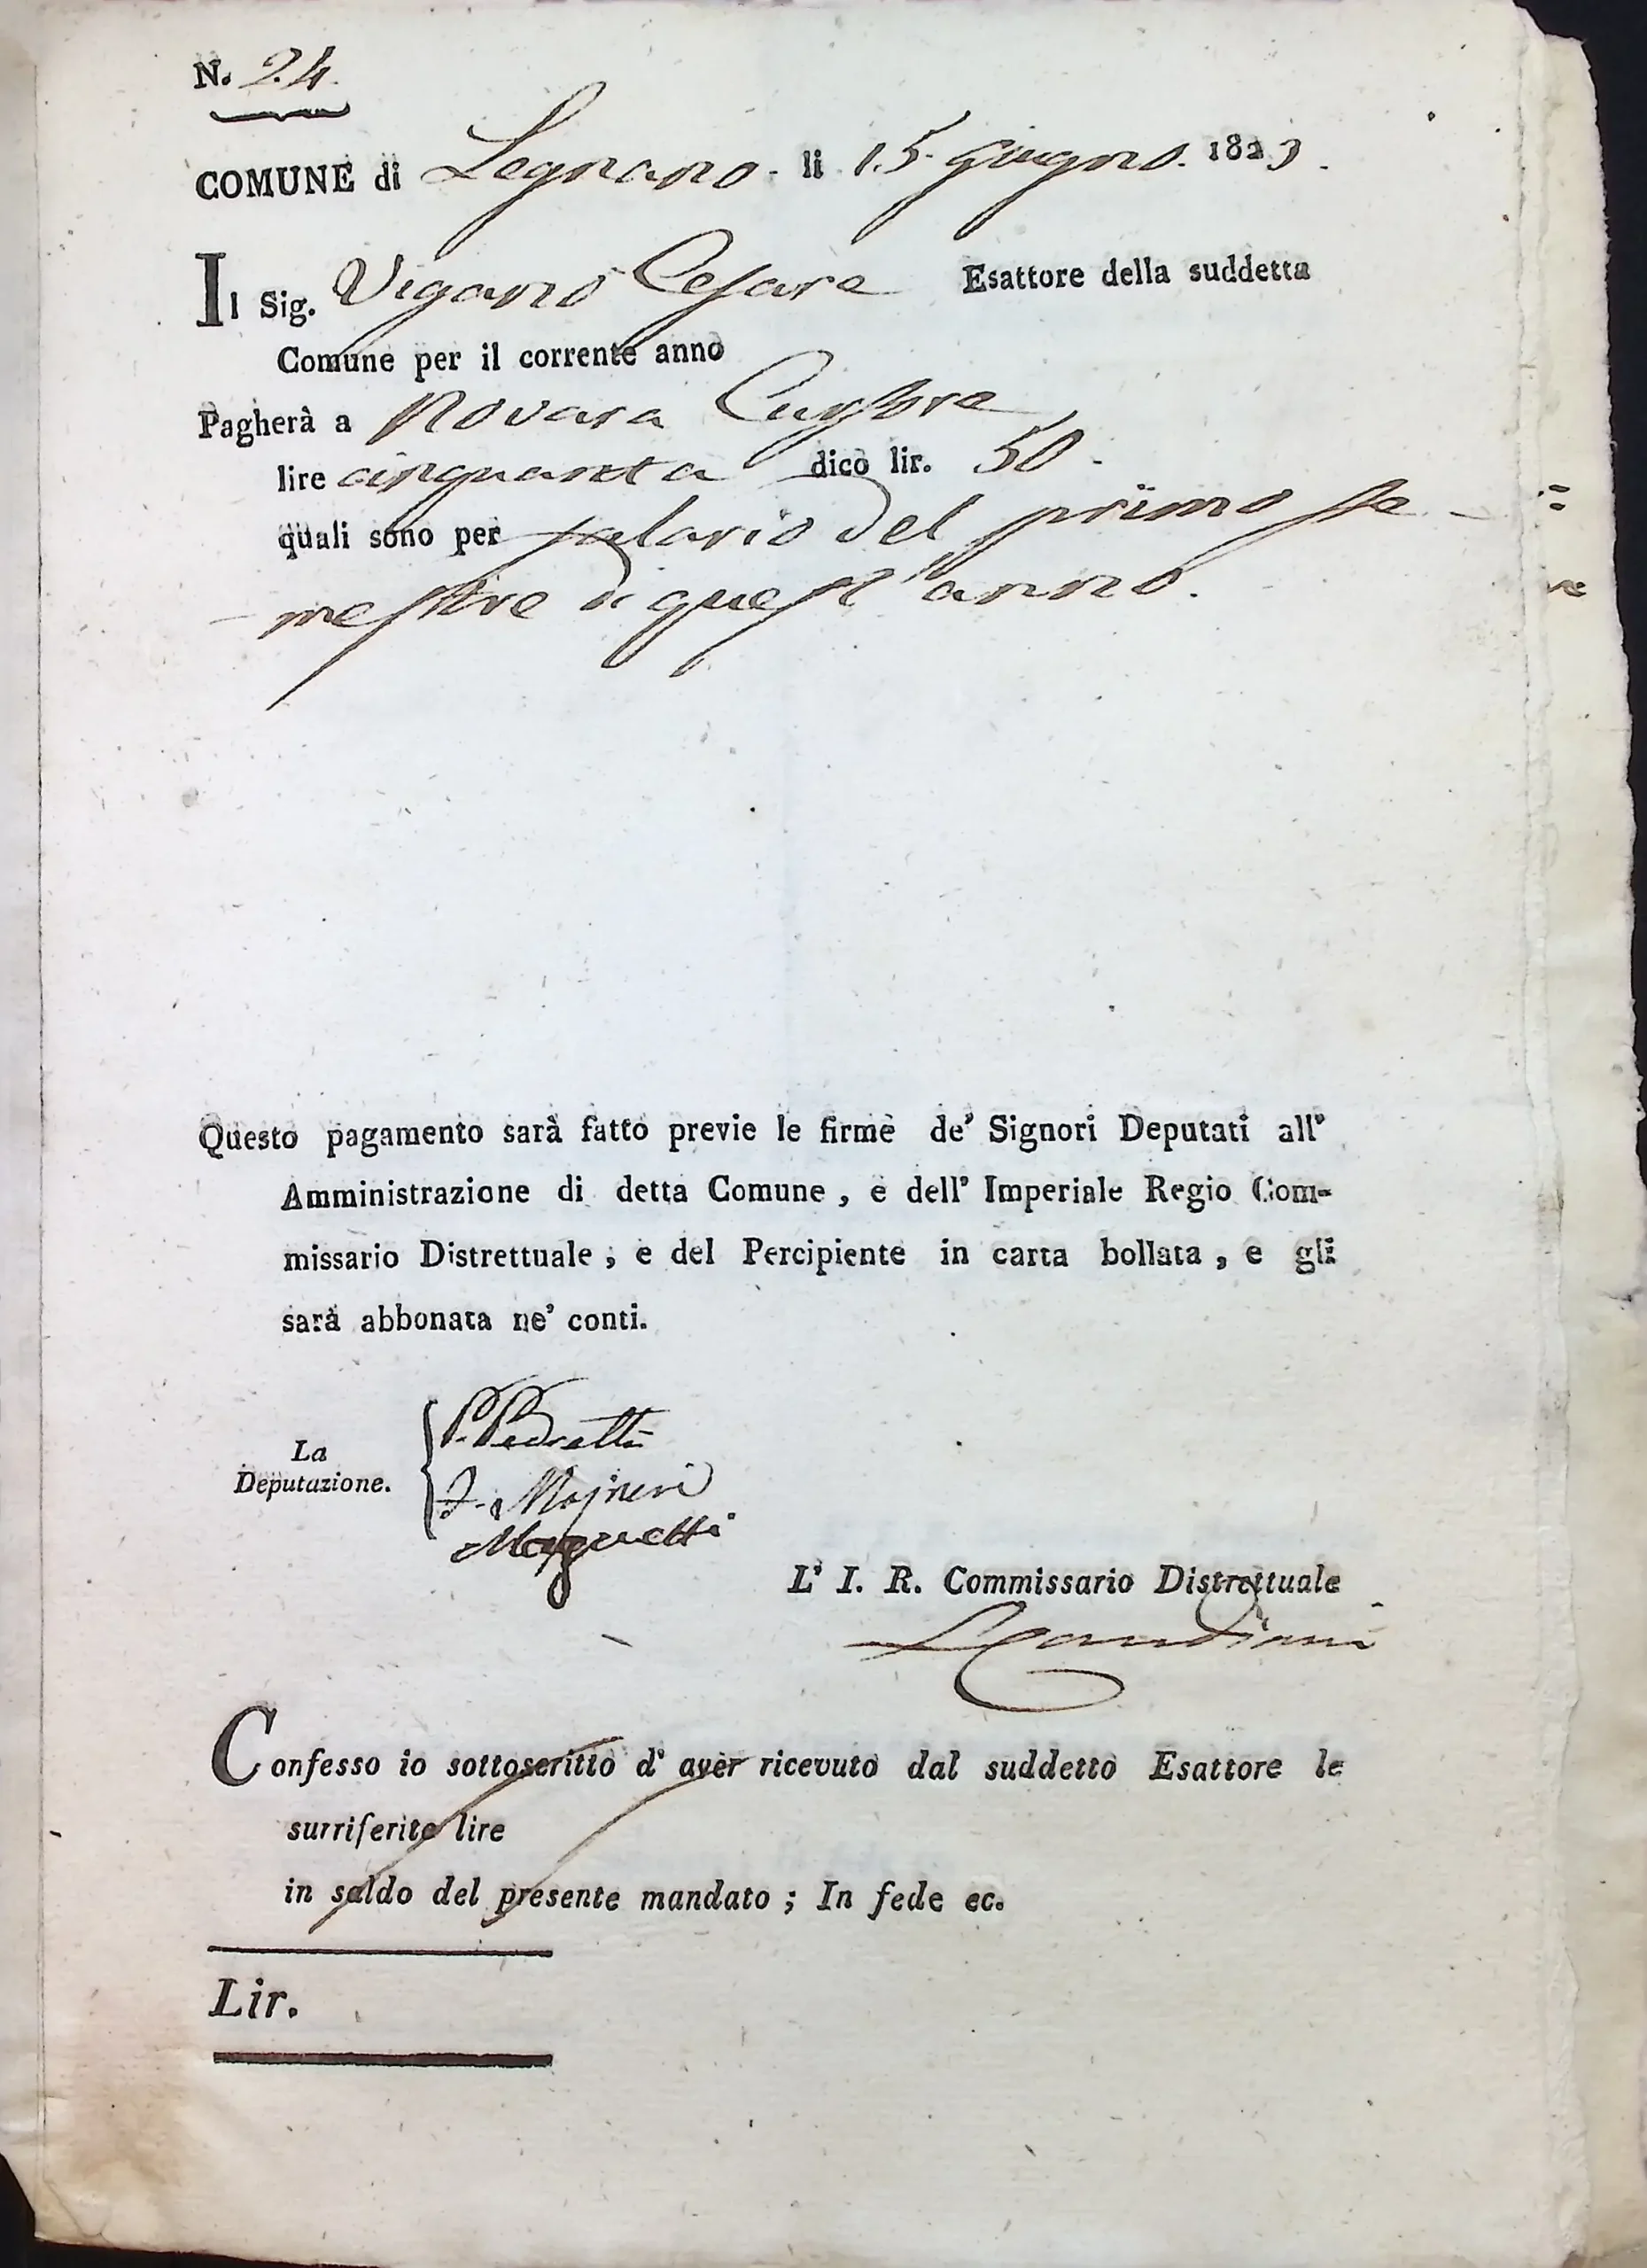 N. 24.
COMUNE di Legnano. li 15. Giugno. 1823.
Il Sig. Viganò Cesare Esattore della suddetta
Comune per il corrente anno
Pagherà a Novara Cursore
lire cinquanta dico lir. 50.
quali sono per salario del primo se-
mestre di quest'anno.
Questo pagamento sarà fatto previe le firme de' Signori Deputati all'
Amministrazione di detta Comune, e dell' Imperiale Regio Com-
missario Distrettuale, e del Percipiente in carta bollata, e gli
sarà abbonata ne' conti.
La
Deputazione.
P. Pedretti
Majneri
L' I. R. Commissario Distrettuale
Confesso io sottoscritto d' aver ricevuto dal suddetto Esattore le
surriferite lire
in saldo del presente mandato; In fede ec.
Lir.